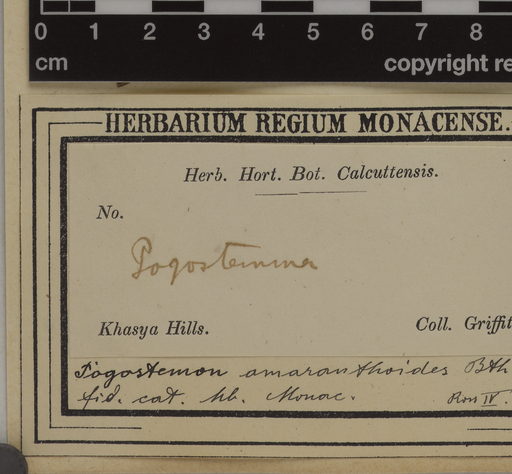 0 1 2 3 4 5 6 7 8
cm copyright re
HERBARIUM REGIUM MONACENSE.
Herb. Hort. Bot. Calcuttensis.
No.
Pogostemma
Khasya Hills. Coll. Griffit
Pogostemon amaranthoides Bth
fid. cat. hb. Monac. IV.